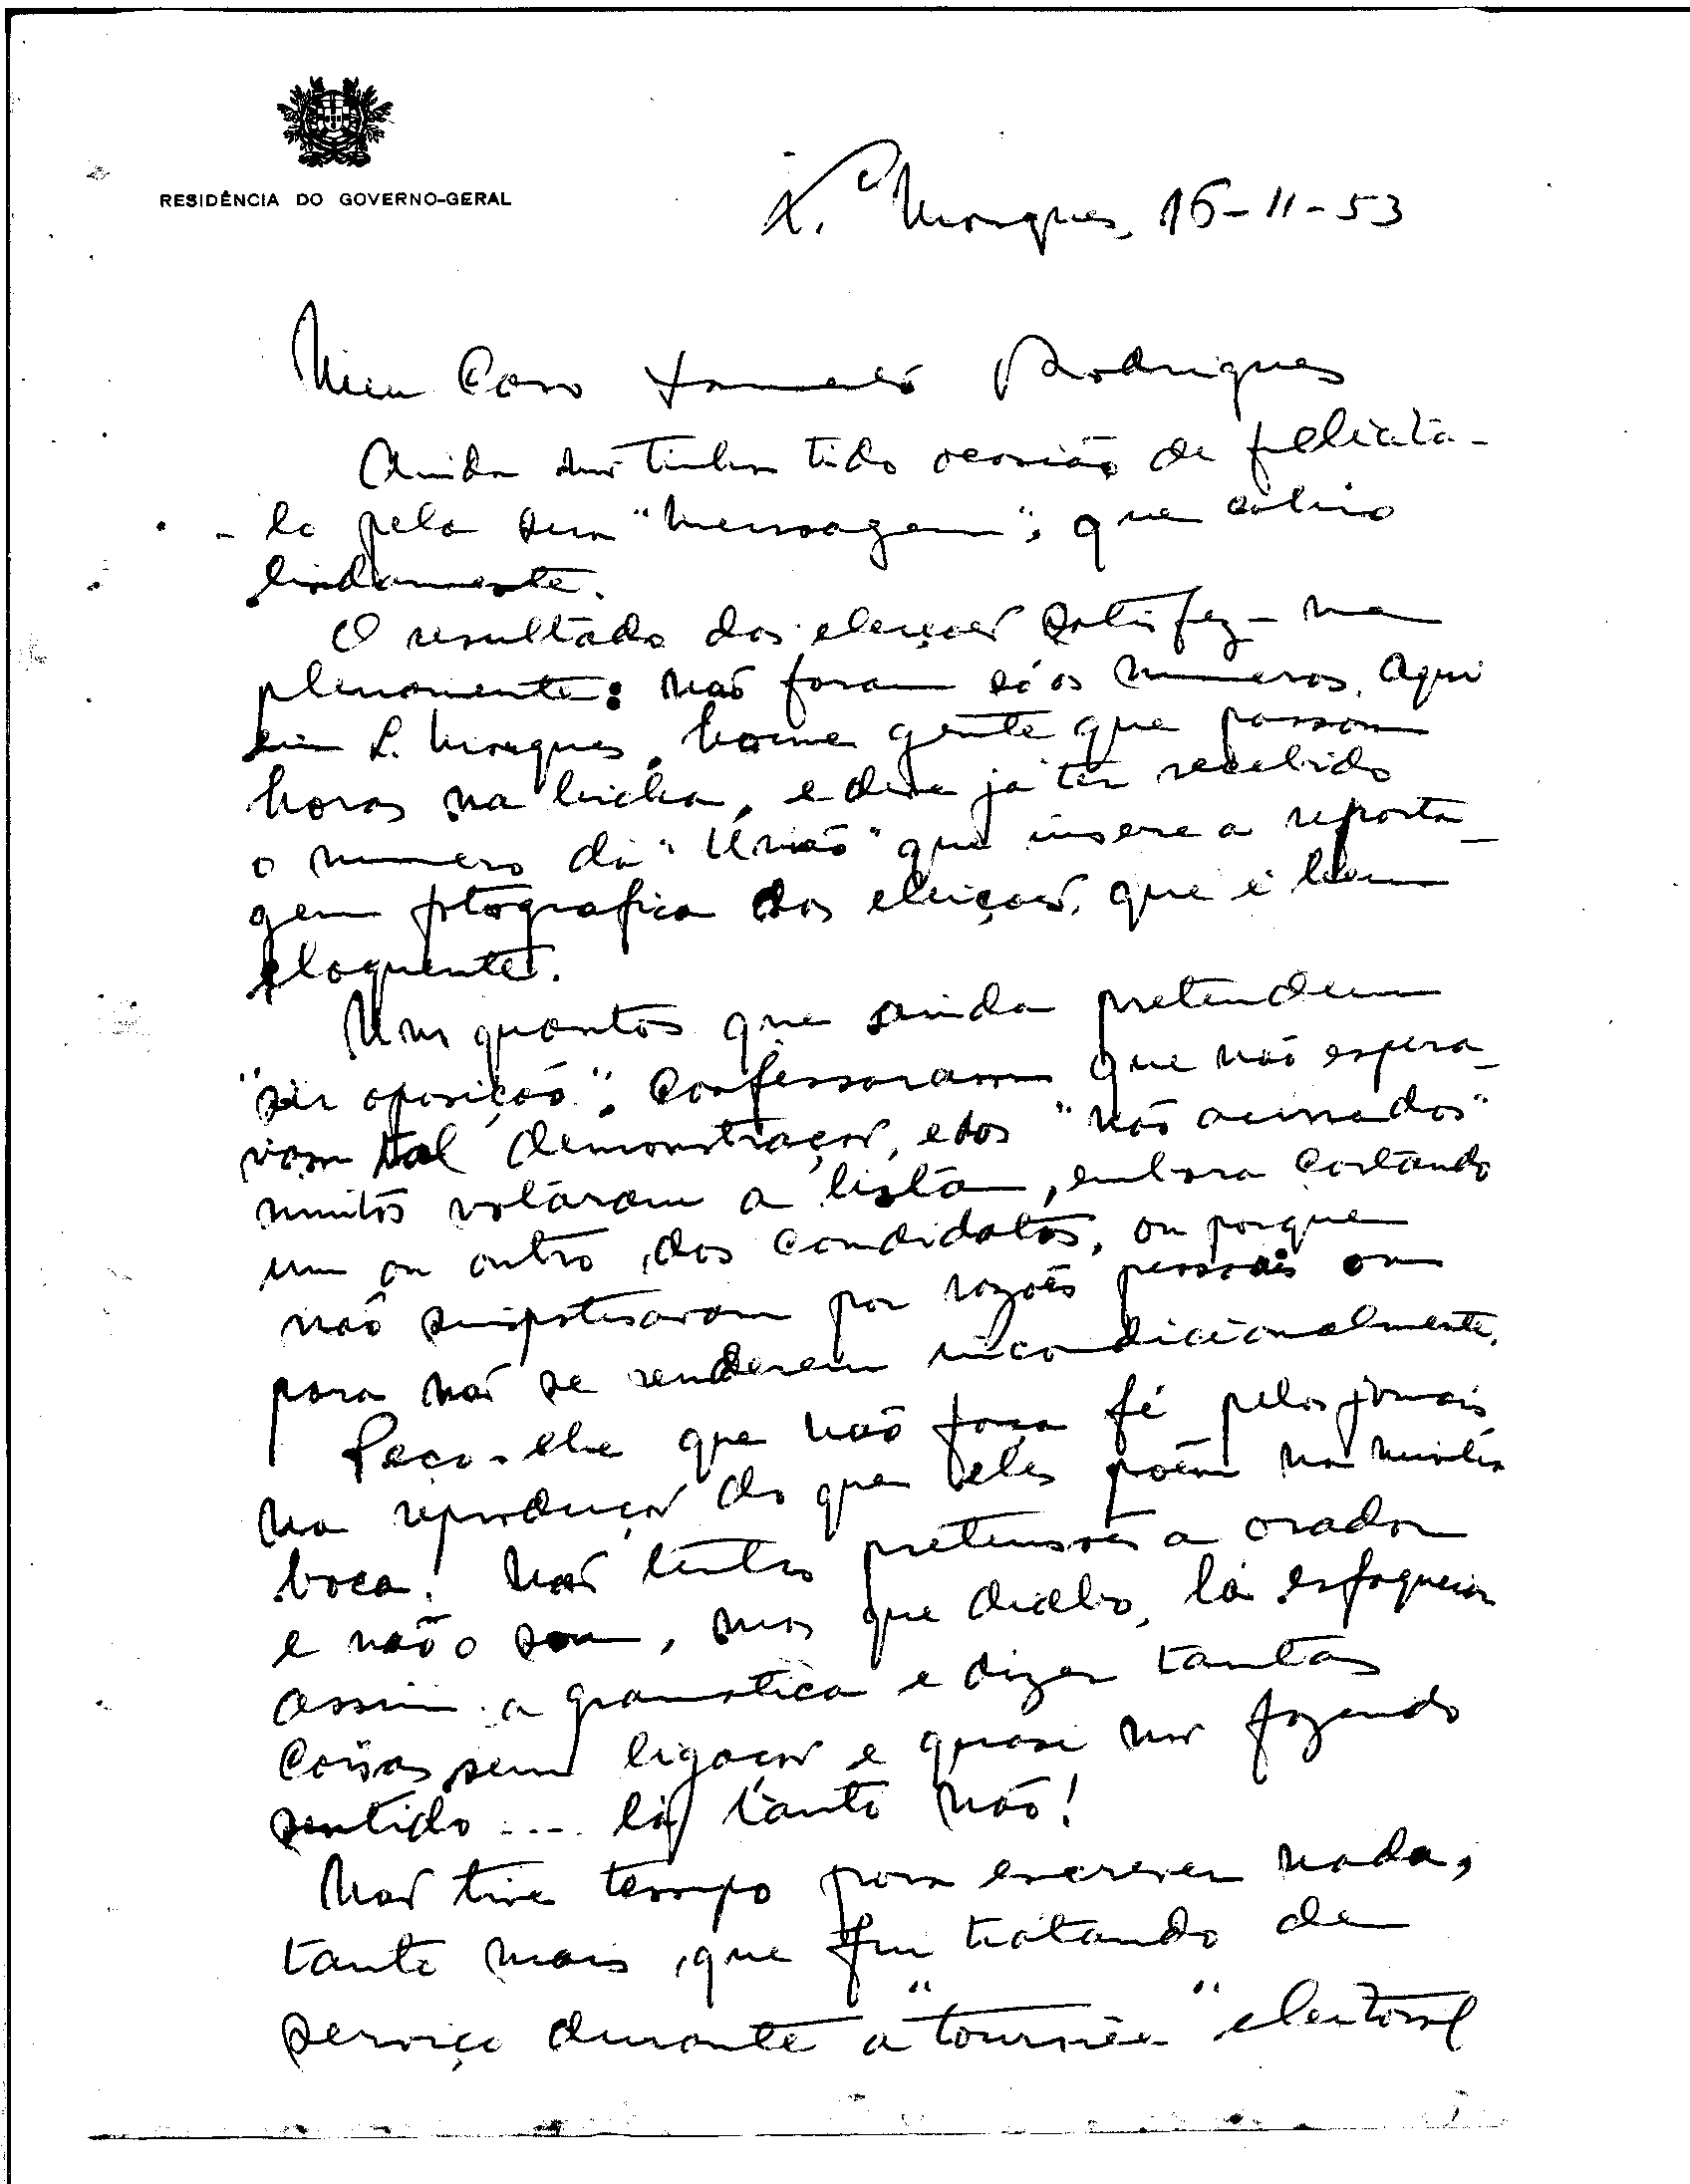 RESIDÊNCIA DO GOVERNO-GERAL
L. Marques, 16-11-53
Meu Caro Sarmento Rodrigues
Ainda não tinha tido ocasião de felicitá-
-lo pela sua "Mensagem", que caiu
lindamente.
O resultado das eleições satisfez-me
plenamente: não foram só os numeros. Aqui
em L. Marques, houve gente que passou
horas na bicha, e deve já ter recebido
o numero da "União" que insere a reporta-
gem fotografica das eleições, que é bem
eloquente.
Uns quantos que ainda pretendem
"ser oposição", confessaram que não espera-
vam tal demonstração, e dos "não acusados"
muitos votaram a lista, embora cortando
um ou outro dos candidatos, ou porque
não simpatisavam por razões pessoais ou
para não se renderem incondicionalmente.
Peço-lhe que não faça fé pelos jornais
na reprodução do que eles põem na minha
boca. Não tenho pretensões a orador
e não o sou, mas que diabo, lá esfaquear
assim a gramatica e dizer tantas
coisas sem ligação e quasi não fazendo
sentido.... lá tanto não!
Não tive tempo para escrever nada,
tanto mais, que fui tratando de
serviço durante a "tournée" eleitoral